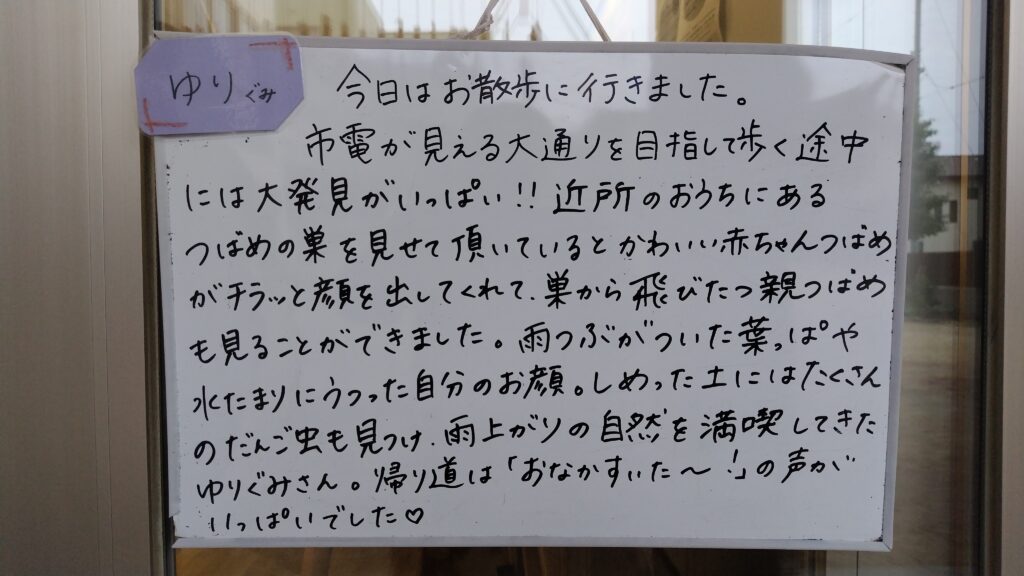 ゆりぐみ
今日はお散歩に行きました。
市電が見える大通りを目指して歩く途中
には大発見がいっぱい!! 近所のおうちにある
つばめの巣を見せて頂いているとかわいい赤ちゃんつばめ
がチラッと顔を出してくれて、巣から飛びたつ親つばめ
も見ることができました。雨つぶがついた葉っぱや
水たまりにうつった自分のお顔。しめった土にはたくさん
のだんご虫も見つけ、雨上がりの自然を満喫してきた
ゆりぐみさん。帰り道は「おなかすいた〜!」の声が
いっぱいでした♡